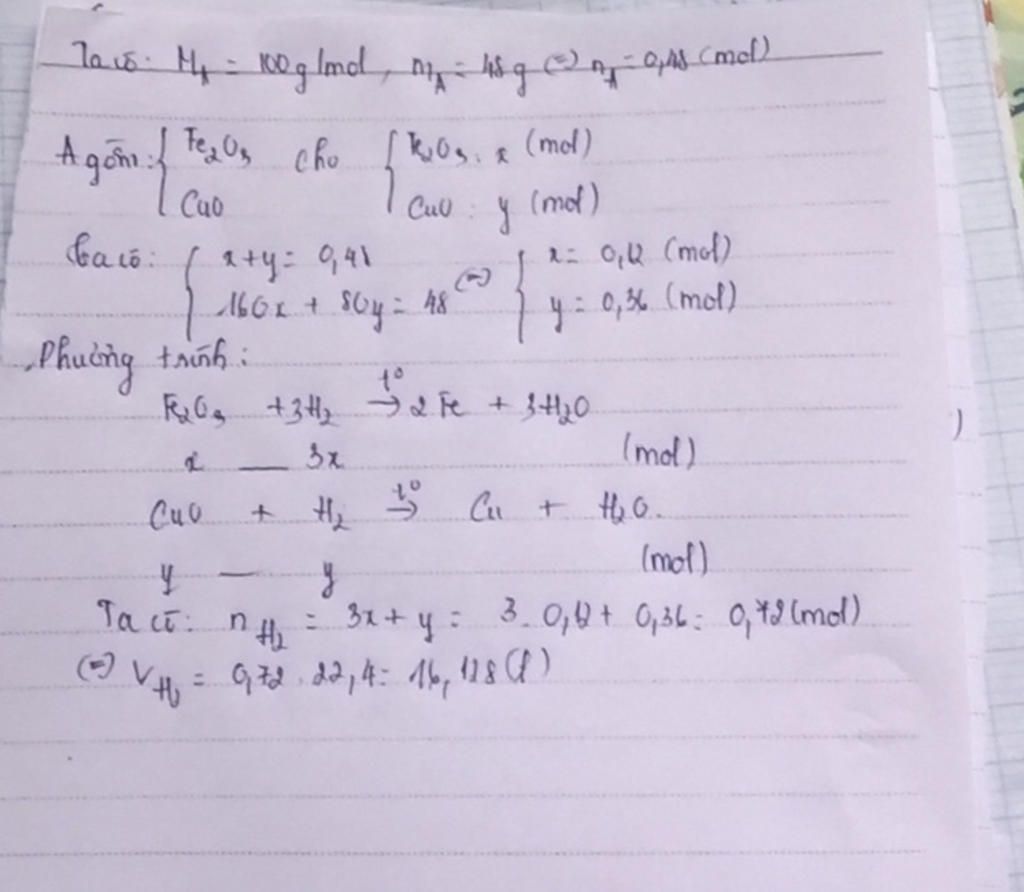 Ta có: M_A = 100g/mol, m_A = 48g (=) n_A = 0,48 (mol)
A gồm: { Fe2O3 cho { Fe2O3: x (mol)
CuO CuO: y (mol)
Ta có: { x+y = 0,48 (=) { x = 0,12 (mol)
160x + 80y = 48 y = 0,36 (mol)
Phương trình:
Fe2O3 + 3H2 t°→ 2Fe + 3H2O
x — 3x (mol)
CuO + H2 t°→ Cu + H2O.
y — y (mol)
Ta có: n H2 = 3x + y = 3. 0,12 + 0,36 = 0,72 (mol)
(=) V H2 = 0,72 . 22,4 = 16,128 (l)